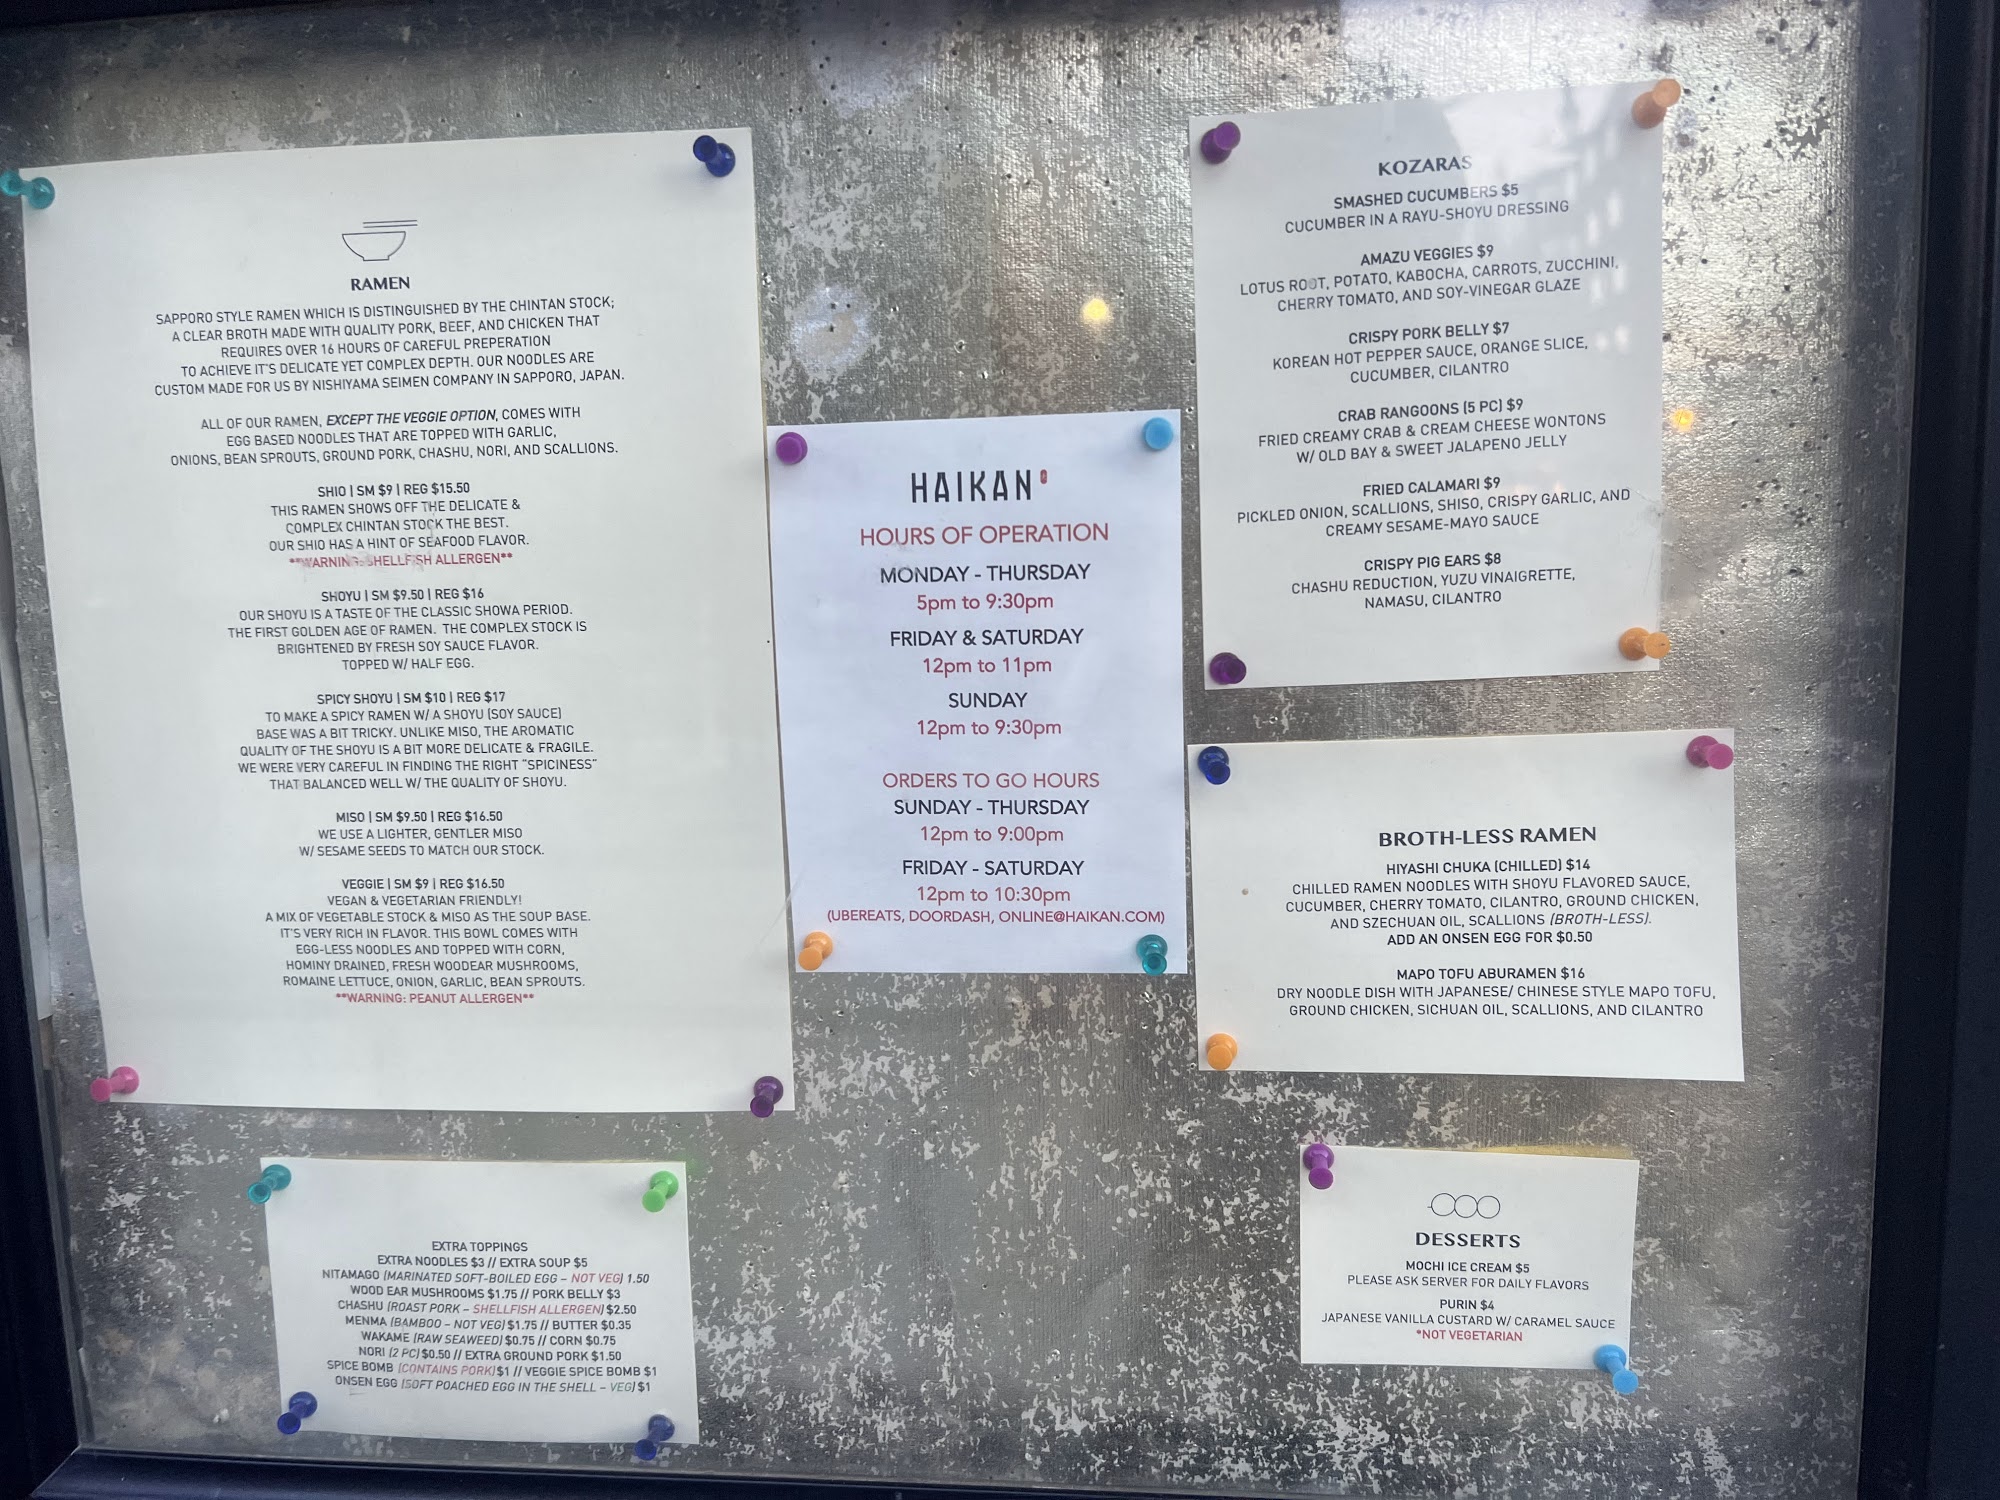 RAMEN
SAPPORO STYLE RAMEN WHICH IS DISTINGUISHED BY THE CHINTAN STOCK;
A CLEAR BROTH MADE WITH QUALITY PORK, BEEF, AND CHICKEN THAT
REQUIRES OVER 16 HOURS OF CAREFUL PREPERATION
TO ACHIEVE IT'S DELICATE YET COMPLEX DEPTH. OUR NOODLES ARE
CUSTOM MADE FOR US BY NISHIYAMA SEIMEN COMPANY IN SAPPORO, JAPAN.
ALL OF OUR RAMEN, EXCEPT THE VEGGIE OPTION, COMES WITH
EGG BASED NOODLES THAT ARE TOPPED WITH GARLIC,
ONIONS, BEAN SPROUTS, GROUND PORK, CHASHU, NORI, AND SCALLIONS.
SHIO | SM $9 | REG $15.50
THIS RAMEN SHOWS OFF THE DELICATE &
COMPLEX CHINTAN STOCK THE BEST.
OUR SHIO HAS A HINT OF SEAFOOD FLAVOR.
**WARNING: SHELLFISH ALLERGEN**
SHOYU | SM $9.50 | REG $16
OUR SHOYU IS A TASTE OF THE CLASSIC SHOWA PERIOD.
THE FIRST GOLDEN AGE OF RAMEN. THE COMPLEX STOCK IS
BRIGHTENED BY FRESH SOY SAUCE FLAVOR.
TOPPED W/ HALF EGG.
SPICY SHOYU | SM $10 | REG $17
TO MAKE A SPICY RAMEN W/ A SHOYU (SOY SAUCE)
BASE WAS A BIT TRICKY. UNLIKE MISO, THE AROMATIC
QUALITY OF THE SHOYU IS A BIT MORE DELICATE & FRAGILE.
WE WERE VERY CAREFUL IN FINDING THE RIGHT "SPICINESS"
THAT BALANCED WELL W/ THE QUALITY OF SHOYU.
MISO | SM $9.50 | REG $16.50
WE USE A LIGHTER, GENTLER MISO
W/ SESAME SEEDS TO MATCH OUR STOCK.
VEGGIE | SM $9 | REG $16.50
VEGAN & VEGETARIAN FRIENDLY!
A MIX OF VEGETABLE STOCK & MISO AS THE SOUP BASE.
IT'S VERY RICH IN FLAVOR. THIS BOWL COMES WITH
EGG-LESS NOODLES AND TOPPED WITH CORN,
HOMINY DRAINED, FRESH WOODEAR MUSHROOMS,
ROMAINE LETTUCE, ONION, GARLIC, BEAN SPROUTS.
**WARNING: PEANUT ALLERGEN**
EXTRA TOPPINGS
EXTRA NOODLES $3 // EXTRA SOUP $5
NITAMAGO (MARINATED SOFT-BOILED EGG – NOT VEG) 1.50
WOOD EAR MUSHROOMS $1.75 // PORK BELLY $3
CHASHU (ROAST PORK – SHELLFISH ALLERGEN) $2.50
MENMA (BAMBOO – NOT VEG) $1.75 // BUTTER $0.35
WAKAME (RAW SEAWEED) $0.75 // CORN $0.75
NORI (2 PC) $0.50 // EXTRA GROUND PORK $1.50
SPICE BOMB (CONTAINS PORK) $1 // VEGGIE SPICE BOMB $1
ONSEN EGG (SOFT POACHED EGG IN THE SHELL – VEG) $1
HAIKAN
HOURS OF OPERATION
MONDAY - THURSDAY
5pm to 9:30pm
FRIDAY & SATURDAY
12pm to 11pm
SUNDAY
12pm to 9:30pm
ORDERS TO GO HOURS
SUNDAY - THURSDAY
12pm to 9:00pm
FRIDAY - SATURDAY
12pm to 10:30pm
(UBEREATS, DOORDASH, ONLINE@HAIKAN.COM)
KOZARAS
SMASHED CUCUMBERS $5
CUCUMBER IN A RAYU-SHOYU DRESSING
AMAZU VEGGIES $9
LOTUS ROOT, POTATO, KABOCHA, CARROTS, ZUCCHINI,
CHERRY TOMATO, AND SOY-VINEGAR GLAZE
CRISPY PORK BELLY $7
KOREAN HOT PEPPER SAUCE, ORANGE SLICE,
CUCUMBER, CILANTRO
CRAB RANGOONS (5 PC) $9
FRIED CREAMY CRAB & CREAM CHEESE WONTONS
W/ OLD BAY & SWEET JALAPENO JELLY
FRIED CALAMARI $9
PICKLED ONION, SCALLIONS, SHISO, CRISPY GARLIC, AND
CREAMY SESAME-MAYO SAUCE
CRISPY PIG EARS $8
CHASHU REDUCTION, YUZU VINAIGRETTE,
NAMASU, CILANTRO
BROTH-LESS RAMEN
HIYASHI CHUKA (CHILLED) $14
CHILLED RAMEN NOODLES WITH SHOYU FLAVORED SAUCE,
CUCUMBER, CHERRY TOMATO, CILANTRO, GROUND CHICKEN,
AND SZECHUAN OIL, SCALLIONS (BROTH-LESS).
ADD AN ONSEN EGG FOR $0.50
MAPO TOFU ABURAMEN $16
DRY NOODLE DISH WITH JAPANESE/ CHINESE STYLE MAPO TOFU,
GROUND CHICKEN, SICHUAN OIL, SCALLIONS, AND CILANTRO
DESSERTS
MOCHI ICE CREAM $5
PLEASE ASK SERVER FOR DAILY FLAVORS
PURIN $4
JAPANESE VANILLA CUSTARD W/ CARAMEL SAUCE
*NOT VEGETARIAN